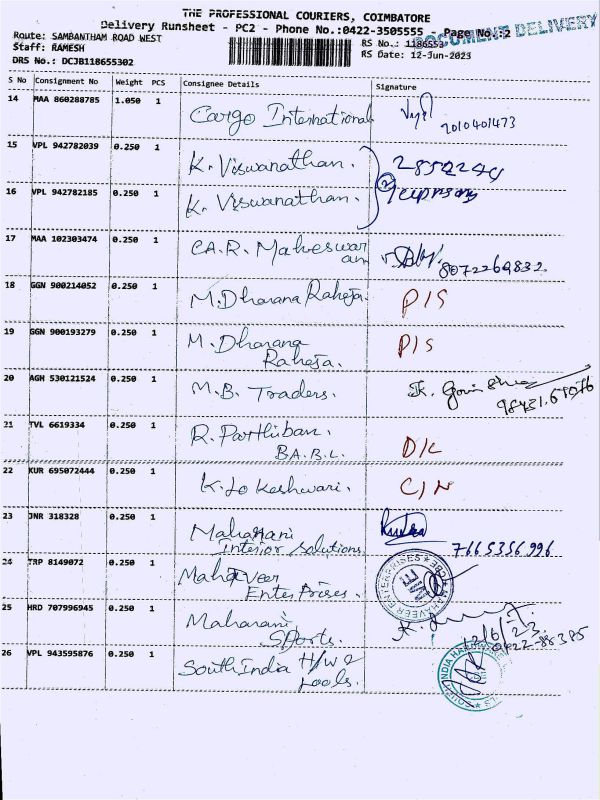 THE PROFESSIONAL COURIERS, COIMBATORE
Delivery Runsheet - PC2 - Phone No.:0422-3505555 - Page No.:2
DOCUMENT DELIVERY
Route: SAMBANTHAM ROAD WEST
RS No.: 1186553
Staff: RAMESH
RS Date: 12-Jun-2023
DRS No.: DCJB118655302
S No Consignment No Weight PCS Consignee Details Signature
14 MAA 860288785 1.050 1 Cargo International
2010401473
15 VPL 942782039 0.250 1 K. Viswanathan.
16 VPL 942782185 0.250 1 K. Viswanathan. 2
17 MAA 102303474 0.250 1 CA.R. Maheswaran
8072269832
18 GGN 900214052 0.250 1 M. Dharana Raheja. P/S
19 GGN 900193279 0.250 1 M. Dharana P/S
Raheja.
20 AGH 530121524 0.250 1 M.B. Traders.
21 TVL 6619334 0.250 1 R. Parthiban. D/L
B.A.B.L.
22 KUR 695072444 0.250 1 K. Lokeshwari. C/N
23 JNR 318328 0.250 1 Maharani
Interior Solutions 7665356996
24 TRP 8149072 0.250 1 Mahaveer
Enterprises. MAHAVEER ENTERPRISES
25 HRD 707996945 0.250 1 Maharani
Sports. 12/6/23
26 VPL 943595876 0.250 1 South India H/W &
Tools. SOUTH INDIA